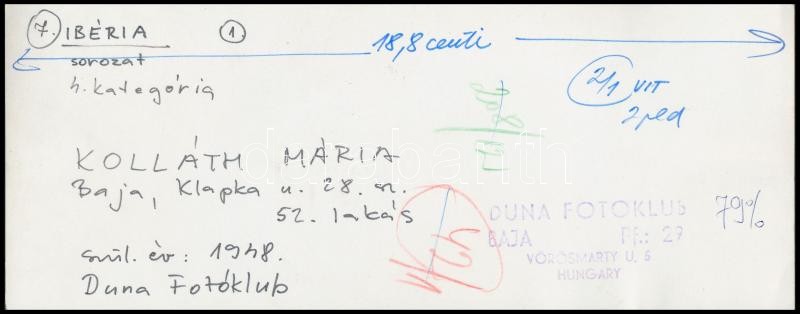 7. IBÉRIA 1
18,8 centi
sorozat
4. kategória
2/1 VIT
2 ped
KOLLÁTH MÁRIA
Baja, Klapka u. 28. sz.
52. lakás
szül. év: 1948.
Duna Fotóklub
DUNA FOTOKLUB
BAJA PF.: 29
VÖRÖSMARTY U. 5
HUNGARY
79%
42
darabanth